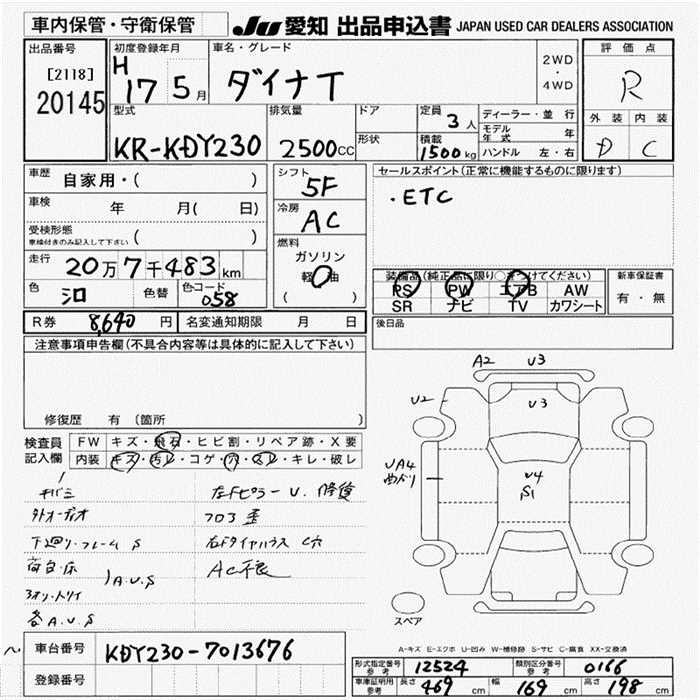 車内保管・守衛保管
JU 愛知 出品申込書 JAPAN USED CAR DEALERS ASSOCIATION
出品番号 [2118] 20145
初度登録年月 H 17 5月
車名・グレード ダイナT
2WD・4WD
評価点 R
型式 KR-KDY230
排気量 2500CC
ドア
形状
定員 3人
積載 1500kg
ディーラー・並行
モデル年式 年
ハンドル 左・右
外装 内装
D C
車歴 自家用・( )
車検 年 月( 日)
受検形態 車検付きのみ記入して下さい ( )
走行 20万7千483km
色 シロ 色替 色コード 058
シフト 5F
冷房 AC
燃料 ガソリン 軽油 ( )
セールスポイント(正常に機能するものに限ります)
・ETC
装備品(純正品に限り○をつけてください)
PS PW エアB AW
SR ナビ TV カワシート
新車保証書 有・無
R券 8,640円 名変通知期限 月 日
後日品
注意事項申告欄(不具合内容等は具体的に記入して下さい)
修復歴 有 (箇所 )
検査員記入欄
FW キズ・飛石・ヒビ割・リペア跡・X要
内装 キズ・汚レ・コゲ・穴・スレ・キレ・破レ
キバミ
外オーディオ
下廻り・フレーム S
荷台・床 A.U.S
各A.U.S
左Fピラー U. 修復
フロア歪
右Fタイヤハウス C穴
AC不良
A2 U3
U2 U3
UA4
U4
S1
スペア
A-キズ E-エクボ U-凹み W-補修跡 S-サビ C-腐食 XX-交換済
車台番号 KDY230-7013676
登録番号
形式指定番号 参考 12524 類別区分番号 参考 0166
車庫証明用 参考 長さ 469cm 幅 169cm 高さ 198cm